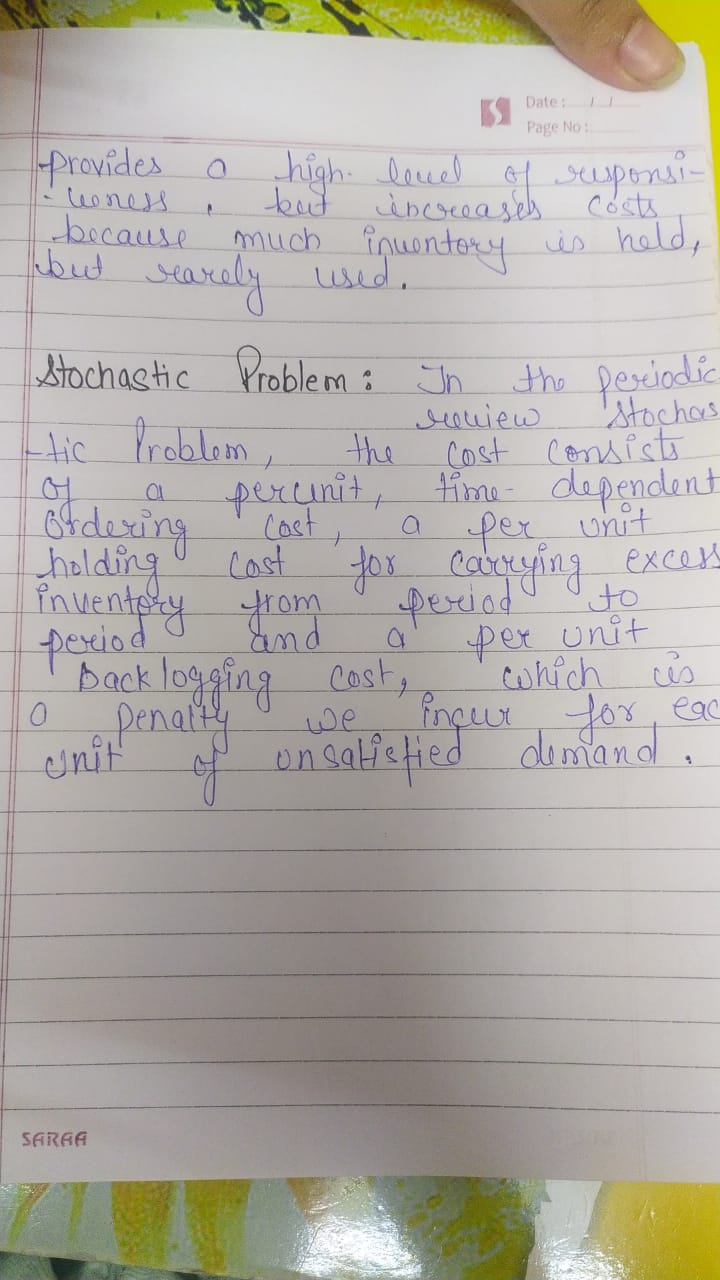 Date: / /
Page No:
provides a high level of responsi-
-veness, but increases costs
because much inventory is held,
but rarely used.
Stochastic Problem: In the periodic
review Stochas
-tic Problem, the cost consists
of a per unit, time-dependent
Ordering cost, a per unit
holding cost for carrying excess
inventory from period to
period and a per unit
backlogging cost, which is
a penalty we incur for eac
unit of unsatisfied demand.
SARAA